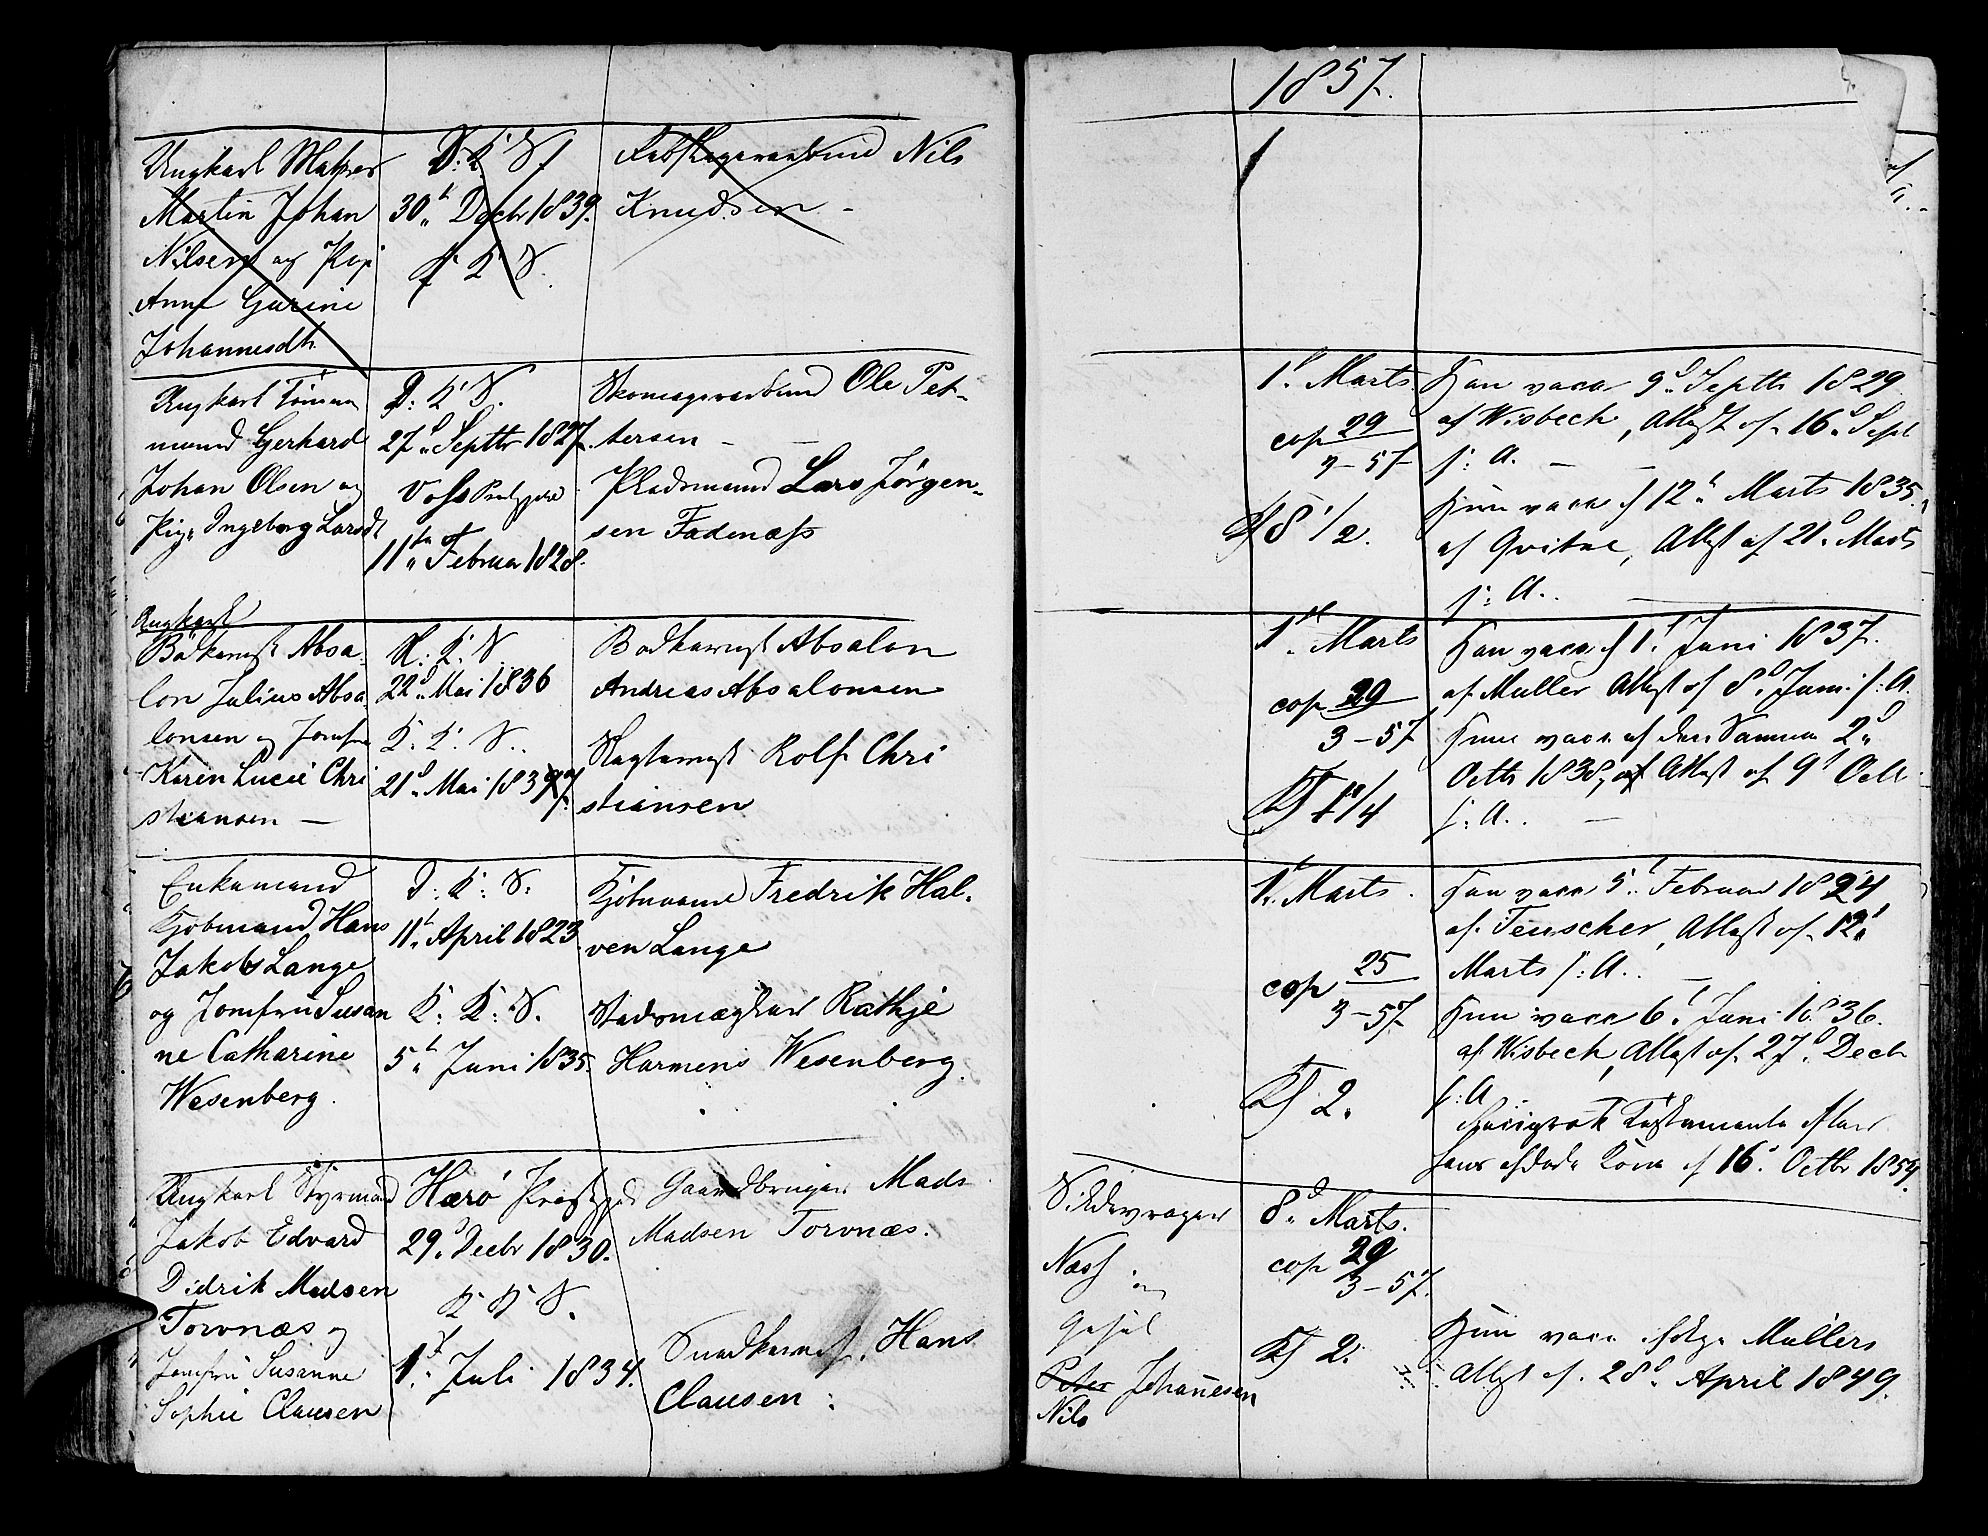 1857.
Ungkarl Mathæus
Martin Johan
Nilsen og Pige
Anne Gurine
Johannesdtr
D. K. S.
30te Decbr 1839.
K. K. S.
Nils
Knudsen -
Ungkarl Tönnes
mund Gerhard
Johan Olsen og
Pige Ingeborg Larsdt
D. K. S.
27d Septbr 1827.
Voss Prestegjeld
11te Februar 1828.
Skomagersvend Ole Pet-
tersen - -
Pladsmand Lars Jørgen-
sen Fadnæss
1t Marts
cop 29
3-57
8 1/2.
Han vacc 9d Septbr 1829
af Wisbech, Attest af 16d Sept
s: A. - -
Hun vacc d 12t Marts 1835
af Qvitne, Attest af 21d Marts
s: A..
Ungkarl
Bödkersv Absa-
lon Julius Absa-
lonsen og Jomfru
Karen Lucie Chri
stiansen -
N. K. S.
22d Mai 1836
K. K. S..
21d Mai 1837.
Bodkermst Absalon
Andreas Absalonsen
Slagtermst Rolf Chri
stiansen
1t Marts
cop 29
3-57
1/4
Han vacc d 1t Juni 1837.
af Muller Attest af 8d Juni s: A.
Hun vacc af den Samme 2d
Octb 1838, Attest af 9t Octb
s: A..
Enkemand
Kjøbmand Hans
Jakob Lange
og Jomfru Susan
ne Catharine
Wesenberg.
D: K: S:
11t April 1823
K: K: S.
5t Juni 1835.
Kjøbmand Fredrik Hal-
ven Lange
Stadsmægler Rathje
Harmens Wesenberg.
1t Marts.
cop 25
3-57
2.
Han vacc 5t Februar 1824
af Teuscher, Attest af 12t
Marts s: A..
Hun vacc 6t Juni 1836.
af Wisbech, Attest af 27d Decb
s: A
Testamente efter
hans afdøde Kone af 16d Octbr 1854.
Ungkarl Styrmand
Jakob Edvard
Didrik Madsen
Torvnæs og
Jomfru Susanne
Sophie Clausen
Herø Prestegjeld
29d Decbr 1830.
K K S.
1t Juli 1834.
Gaardbruger Mads
Madsen Torvnæs.
Snedkermst. Hans
Clausen :
Sildevrager
Næss og
Peter Johannesen
Nils
8d Marts.
cop 29
3-57.
2.
Hun vacc ifølge Mullers
Attest af 28d April 1849.